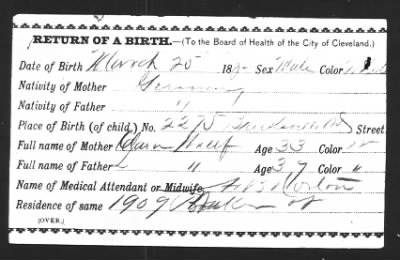 RETURN OF A BIRTH.—(To the Board of Health of the City of Cleveland.)
Date of Birth March 25 18 Sex Male Color
Nativity of Mother Germany
Nativity of Father "
Place of Birth (of child,) No. 2275 Street
Full name of Mother Age 33 Color
Full name of Father " Age 37 Color "
Name of Medical Attendant or Midwife Horton
Residence of same 1909
(OVER.)